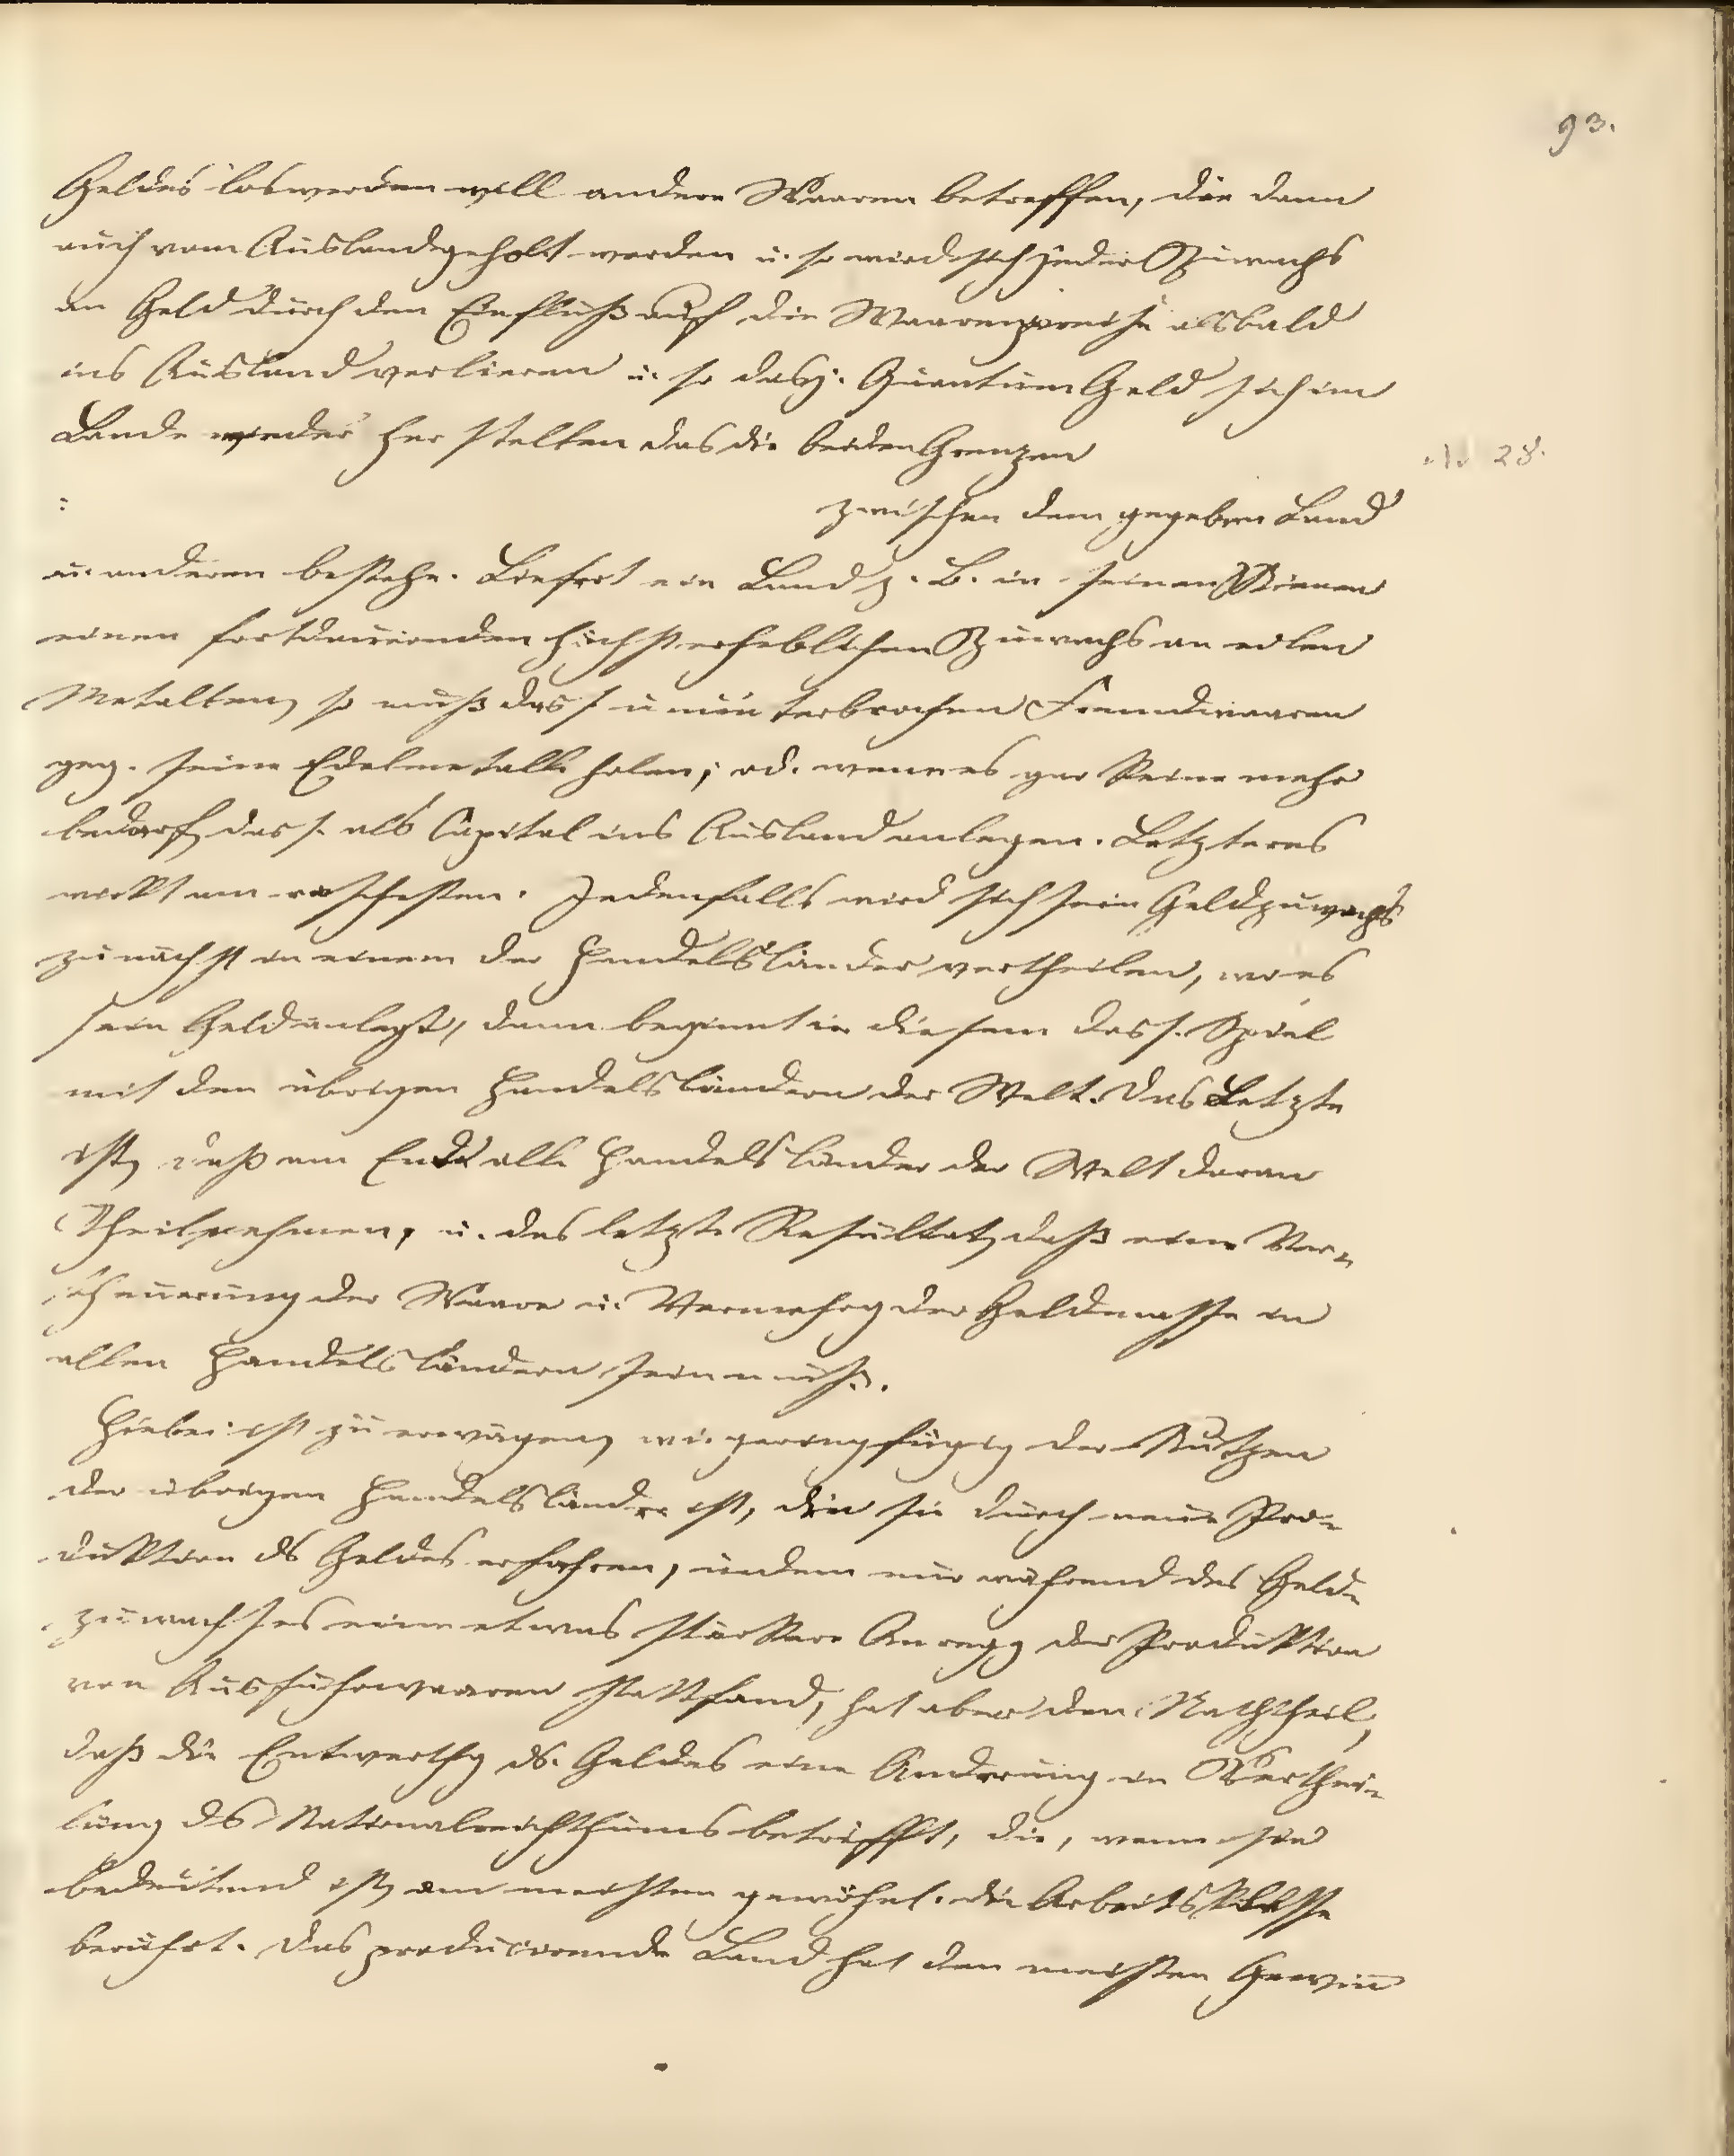 93.
Geldes loswerden will andere Waaren betreffen, die dann
auch vom Ausland geholt werden u. so wird sich jeder Zuwachs
an Geld durch den Einfluß auf die Waarenpreise alsbald
ins Ausland verlieren u. so dasj. Quantum Geld sich im
Lande wieder her stellen das die beiden Grenzen
28.
zwischen dem gegebnen Land
u. anderen bestehe. Liefert ein Land z. B. in seinen Minen
einen fortdauernden höchst erheblichen Zuwachs an edlen
Metallen, so muß dass. ununterbrochen Fremdwaaren
geg. seine Edelmetalle holen; od. wenn es gar keine mehr
bedarf, dass. als Capital ins Ausland anlegen. Letzteres
wirkt am raschesten. Jedenfalls wird sich sein Geldzuwachs
zunächst in einem der Handelsländer vertheilen, wo es
sein Geld anlegt, dann beginnt in diesem dass. Spiel
mit den übrigen Handelsländern der Welt. Das Letzte
ist, daß am Ende alle Handelsländer der Welt daran
Theil nehmen, u. das letzte Resultat, daß eine Ver-
theuerung der Waare u. Vermehrg der Geldmasse in
allen Handelsländern sein muß.
Hiebei ist zu erwägen, wie geringfügig der Nutzen
der übrigen Handelsländer ist, den sie durch neue Pro-
duktion ds Geldes erfahren, indem nur während des Geld-
zuwachses eine etwas stärkere Anregg der Produktion
von Ausfuhrwaaren stattfand, hat aber den Nachtheil,
daß die Entwerthg ds. Geldes eine Änderung in Verthei-
lung ds Nationalreichthums betrifft, die, wenn sie
bedeutend ist, am meisten gewöhnl. die Arbeitsklasse
berührt. Das producirende Land hat den meisten Gewinn